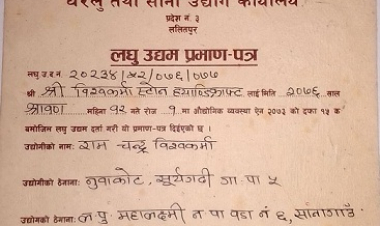 घरेलु तथा साना उद्योग कार्यालय
प्रदेश नं. ३
ललितपुर
लघु उद्यम प्रमाण-पत्र
लघु उ.द.नं. २०२३४/५८२/०७६/०७७
श्री श्री विश्वकर्मा स्टोन ह्याण्डिक्राफ्ट लाई मिति २०७६ साल
श्रावण महिना १२ गते रोज १ मा औद्योगिक व्यवस्था ऐन २०७३ को दफा १५ क
बमोजिम लघु उद्यम दर्ता गरी यो प्रमाण-पत्र दिईएको छ ।
उद्योगीको नामः राम चन्द्र विश्वकर्मा
उद्योगीको ठेगानाः नुवाकोट, सूर्यगढी गा. पा ५
उद्योगको ठेगानाः ल.पु. महालक्ष्मी न पा वडा नं ६, सानागाउँ